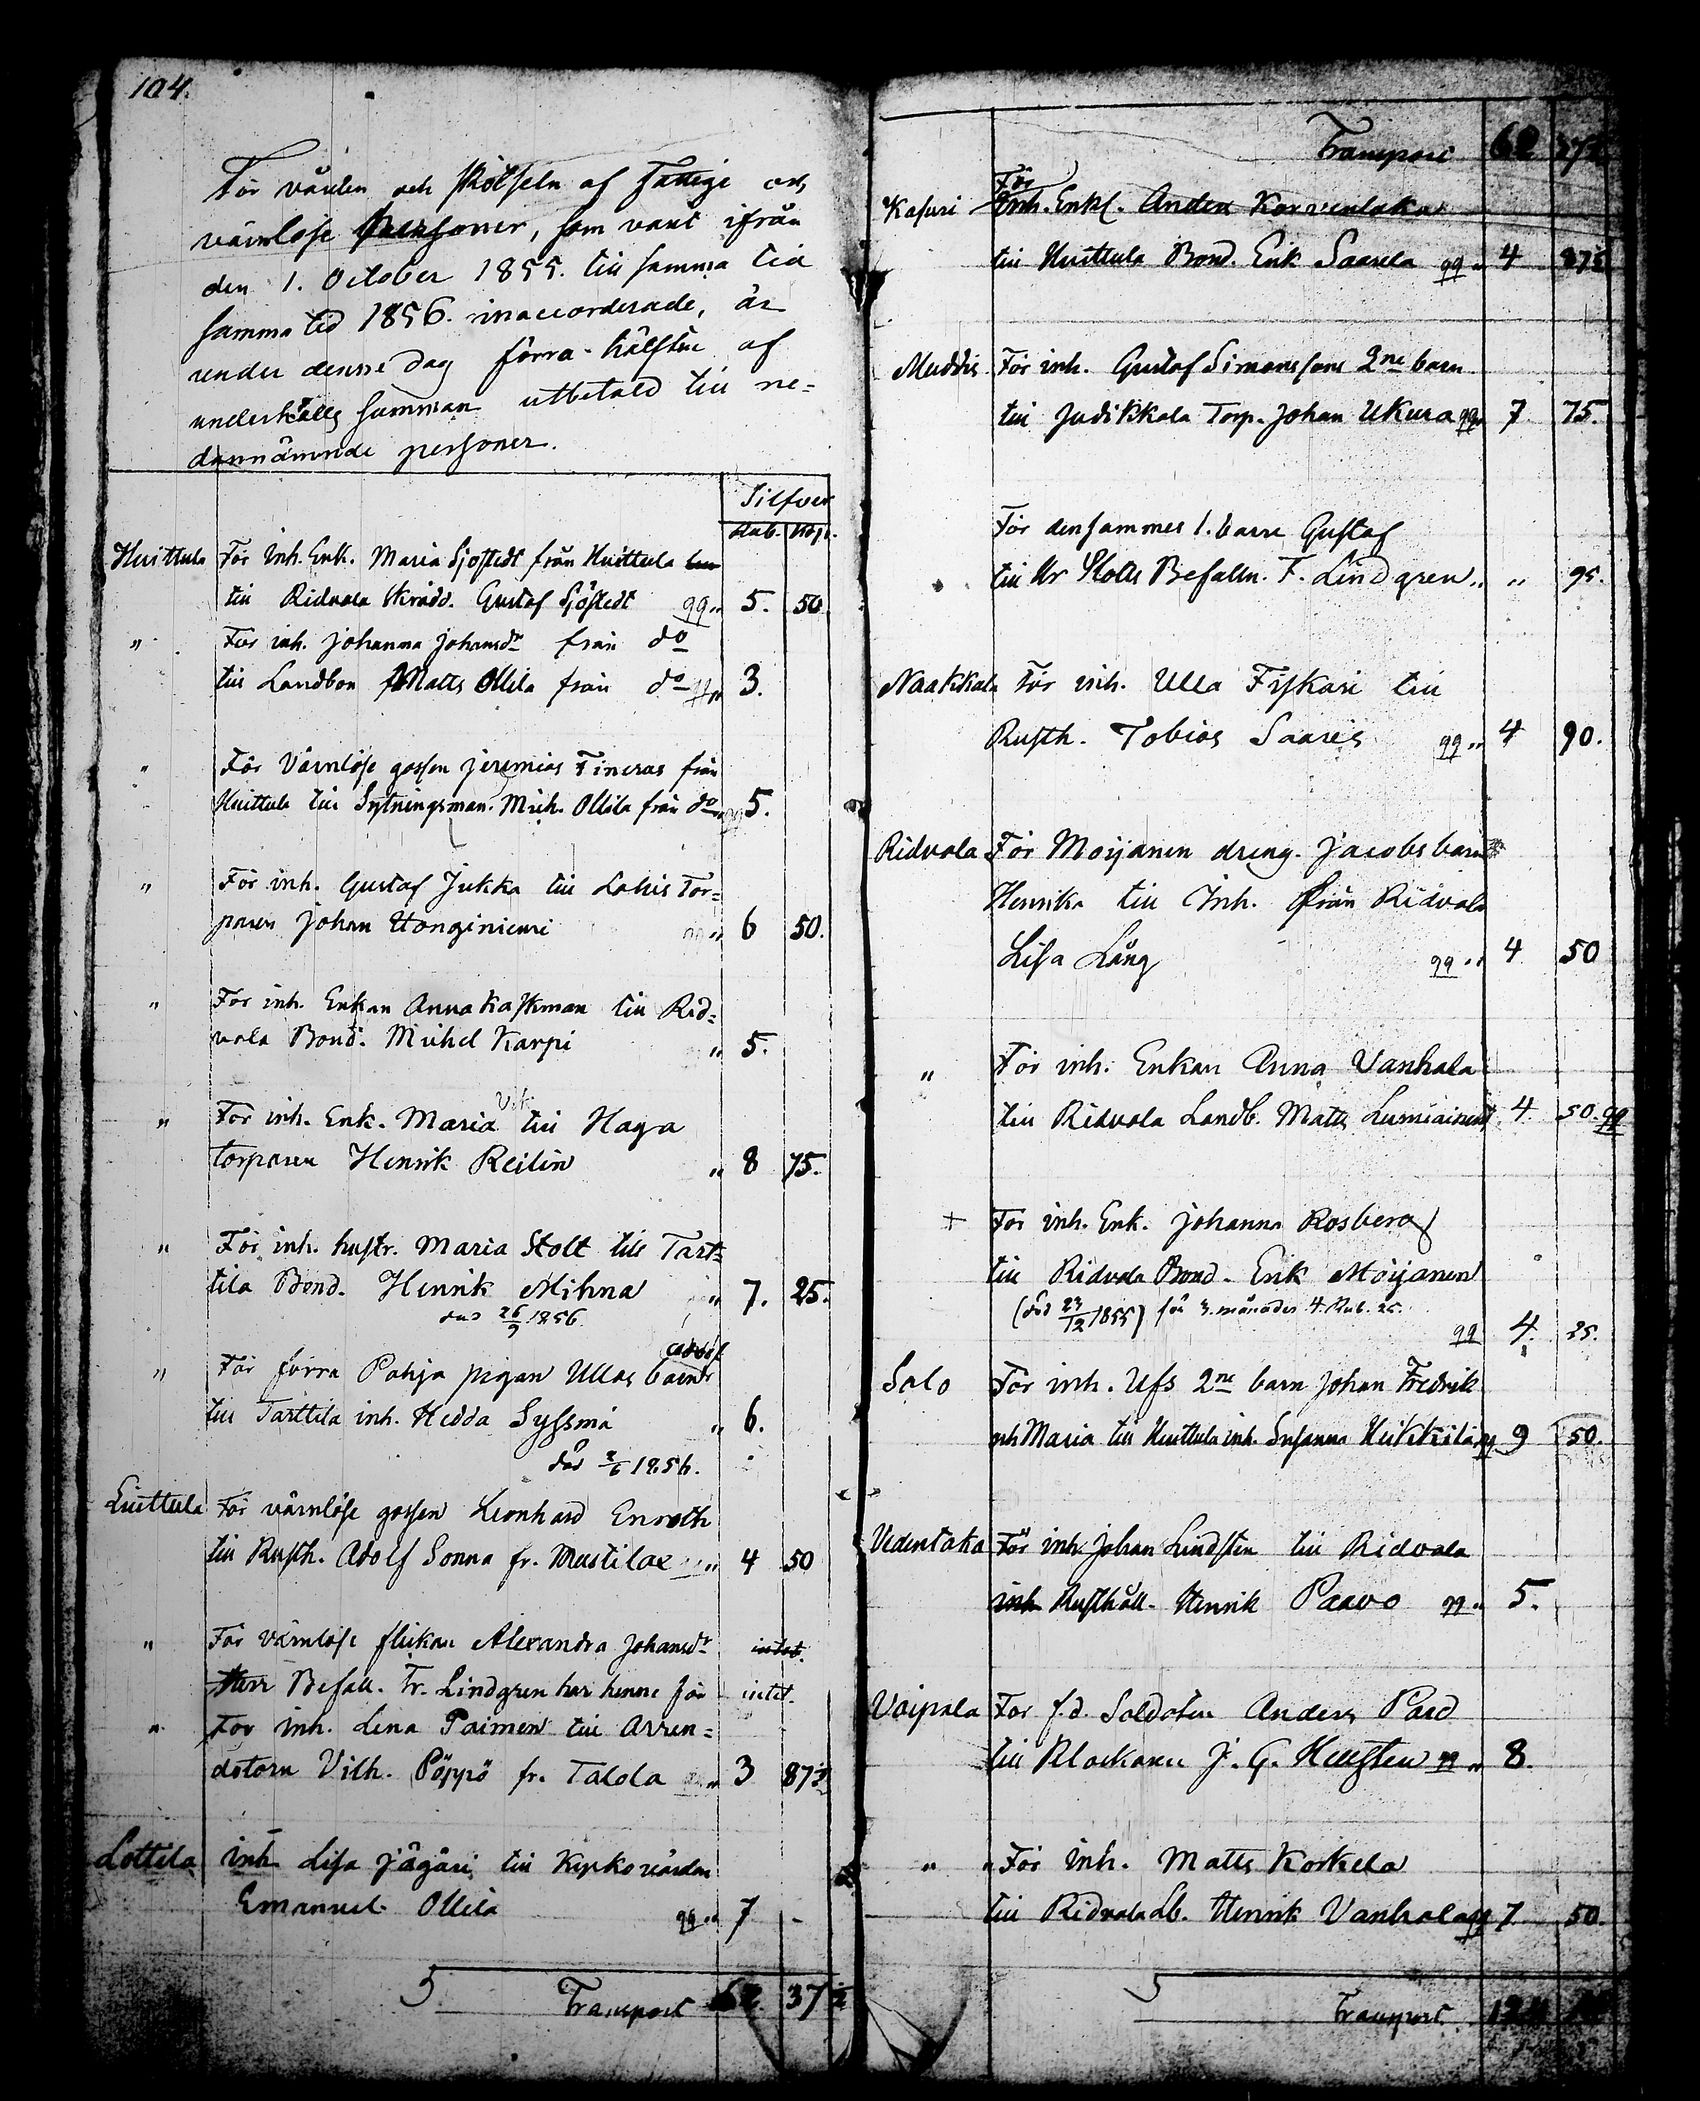 104.
För vården och skötseln af fattige och
värnlöse personer, som varit ifrån
den 1. October 1855. till samma till
samma tid 1856. inaccorderade, är
under denne dag förra hälften af
underhålls summan utbetald till ne=
dannämnde personer.
Silfver
Rub. Kop.
Huittula För Inh. Enk. Maria Sjöstedt från Huittula
till Ridvala Skrädd. Gustaf Sjöstedt qq „ 5. 50.
„ För inh. Johanna Johansdr från do
till Landbon Matts Ollila från do qq „ 3.
„ För Värnlöse gossen Jeremias Fineras från
Huittula till Sytningsman. Mich. Ollila från do „ 5.
„ För inh. Gustaf Jukka till Lahis Tor=
paren Johan Honginiemi qq „ 6 50.
„ För inh. Enkan Anna Kaskman till Rid=
vala Bond. Michel Karpi „ 5.
„ För inh. Enk. Maria till Haga
torparen Henrik Reilin „ 8 75.
„ För inh. hustr. Maria Stolt till Tart=
tila Bond. Henrik Mihna „ 7. 25.
död 26/9 1856.
„ För förra Pohja pigan Ullas barn
till Tarttila inh. Hedda Syssmä „ 6.
död 2/6 1856.
Liuttula För värnlöse gossen Leonhard Enroth
till Rusth. Adolf Sonna fr. Mustila „ 4 50
„ För värnlösa flickan Alexandra Johansdr intet.
Herr Befall. Fr. Lindgren har henne för intet.
„ För inh. Lena Paimen till Arren=
datorn Vilh. Pöppö fr. Talola „ 3 87½
Lottila inh Lisa Jägäri till Kyrkovärden
Emanuel Ollila qq „ 7 -
Transport 62. 37½
Transport 62 37½
Kasuri För
Inh. Enkl. Anders Korvenlaka
till Huittula Bond. Erik Saarela qq „ 4 87½
Muddis För inh. Gustaf Simonssons 2ne barn
till Judikkala Torp. Johan Ukura qq „ 7 75.
För densammes 1. barn Gustaf
till Hr Befalln. F. Lindgren „ „ 95.
Naakkala För inh. Ulla Fiskari till
Rusth. Tobias Saaris qq „ 4 90.
Ridvala För Moijanen dräng. Jacobs barn
Henrika till Inh. från Ridvala
Lisa Lång qq „ 4 50
„ För inh. Enkan Anna Vanhala
till Ridvala Landb. Matts Lumiainen 4. 50. qq
+ För inh. Enk. Johanna Rosberg
till Ridvala Bond. Erik Moijanen
(död 23/12 1855) för 3. månader 4. Rub. 25.
qq 4. 25.
Salo För inh. Ufs 2ne barn Johan Fredrik
och Maria till Huittula inh. Susanna Heikkilä qq 9 50.
Uidentaka För inh. Johan Lindsten till Ridvala
inh Rusthåll. Henrik Paavo qq „ 5.
Voipala För f.d. Soldaten Anders Pard
till Klockaren J. G. Hellsten qq „ 8.
„ „ För inh. Matts Korkela
till Ridvala Lb. Henrik Vanhala qq 7 50.
Transport